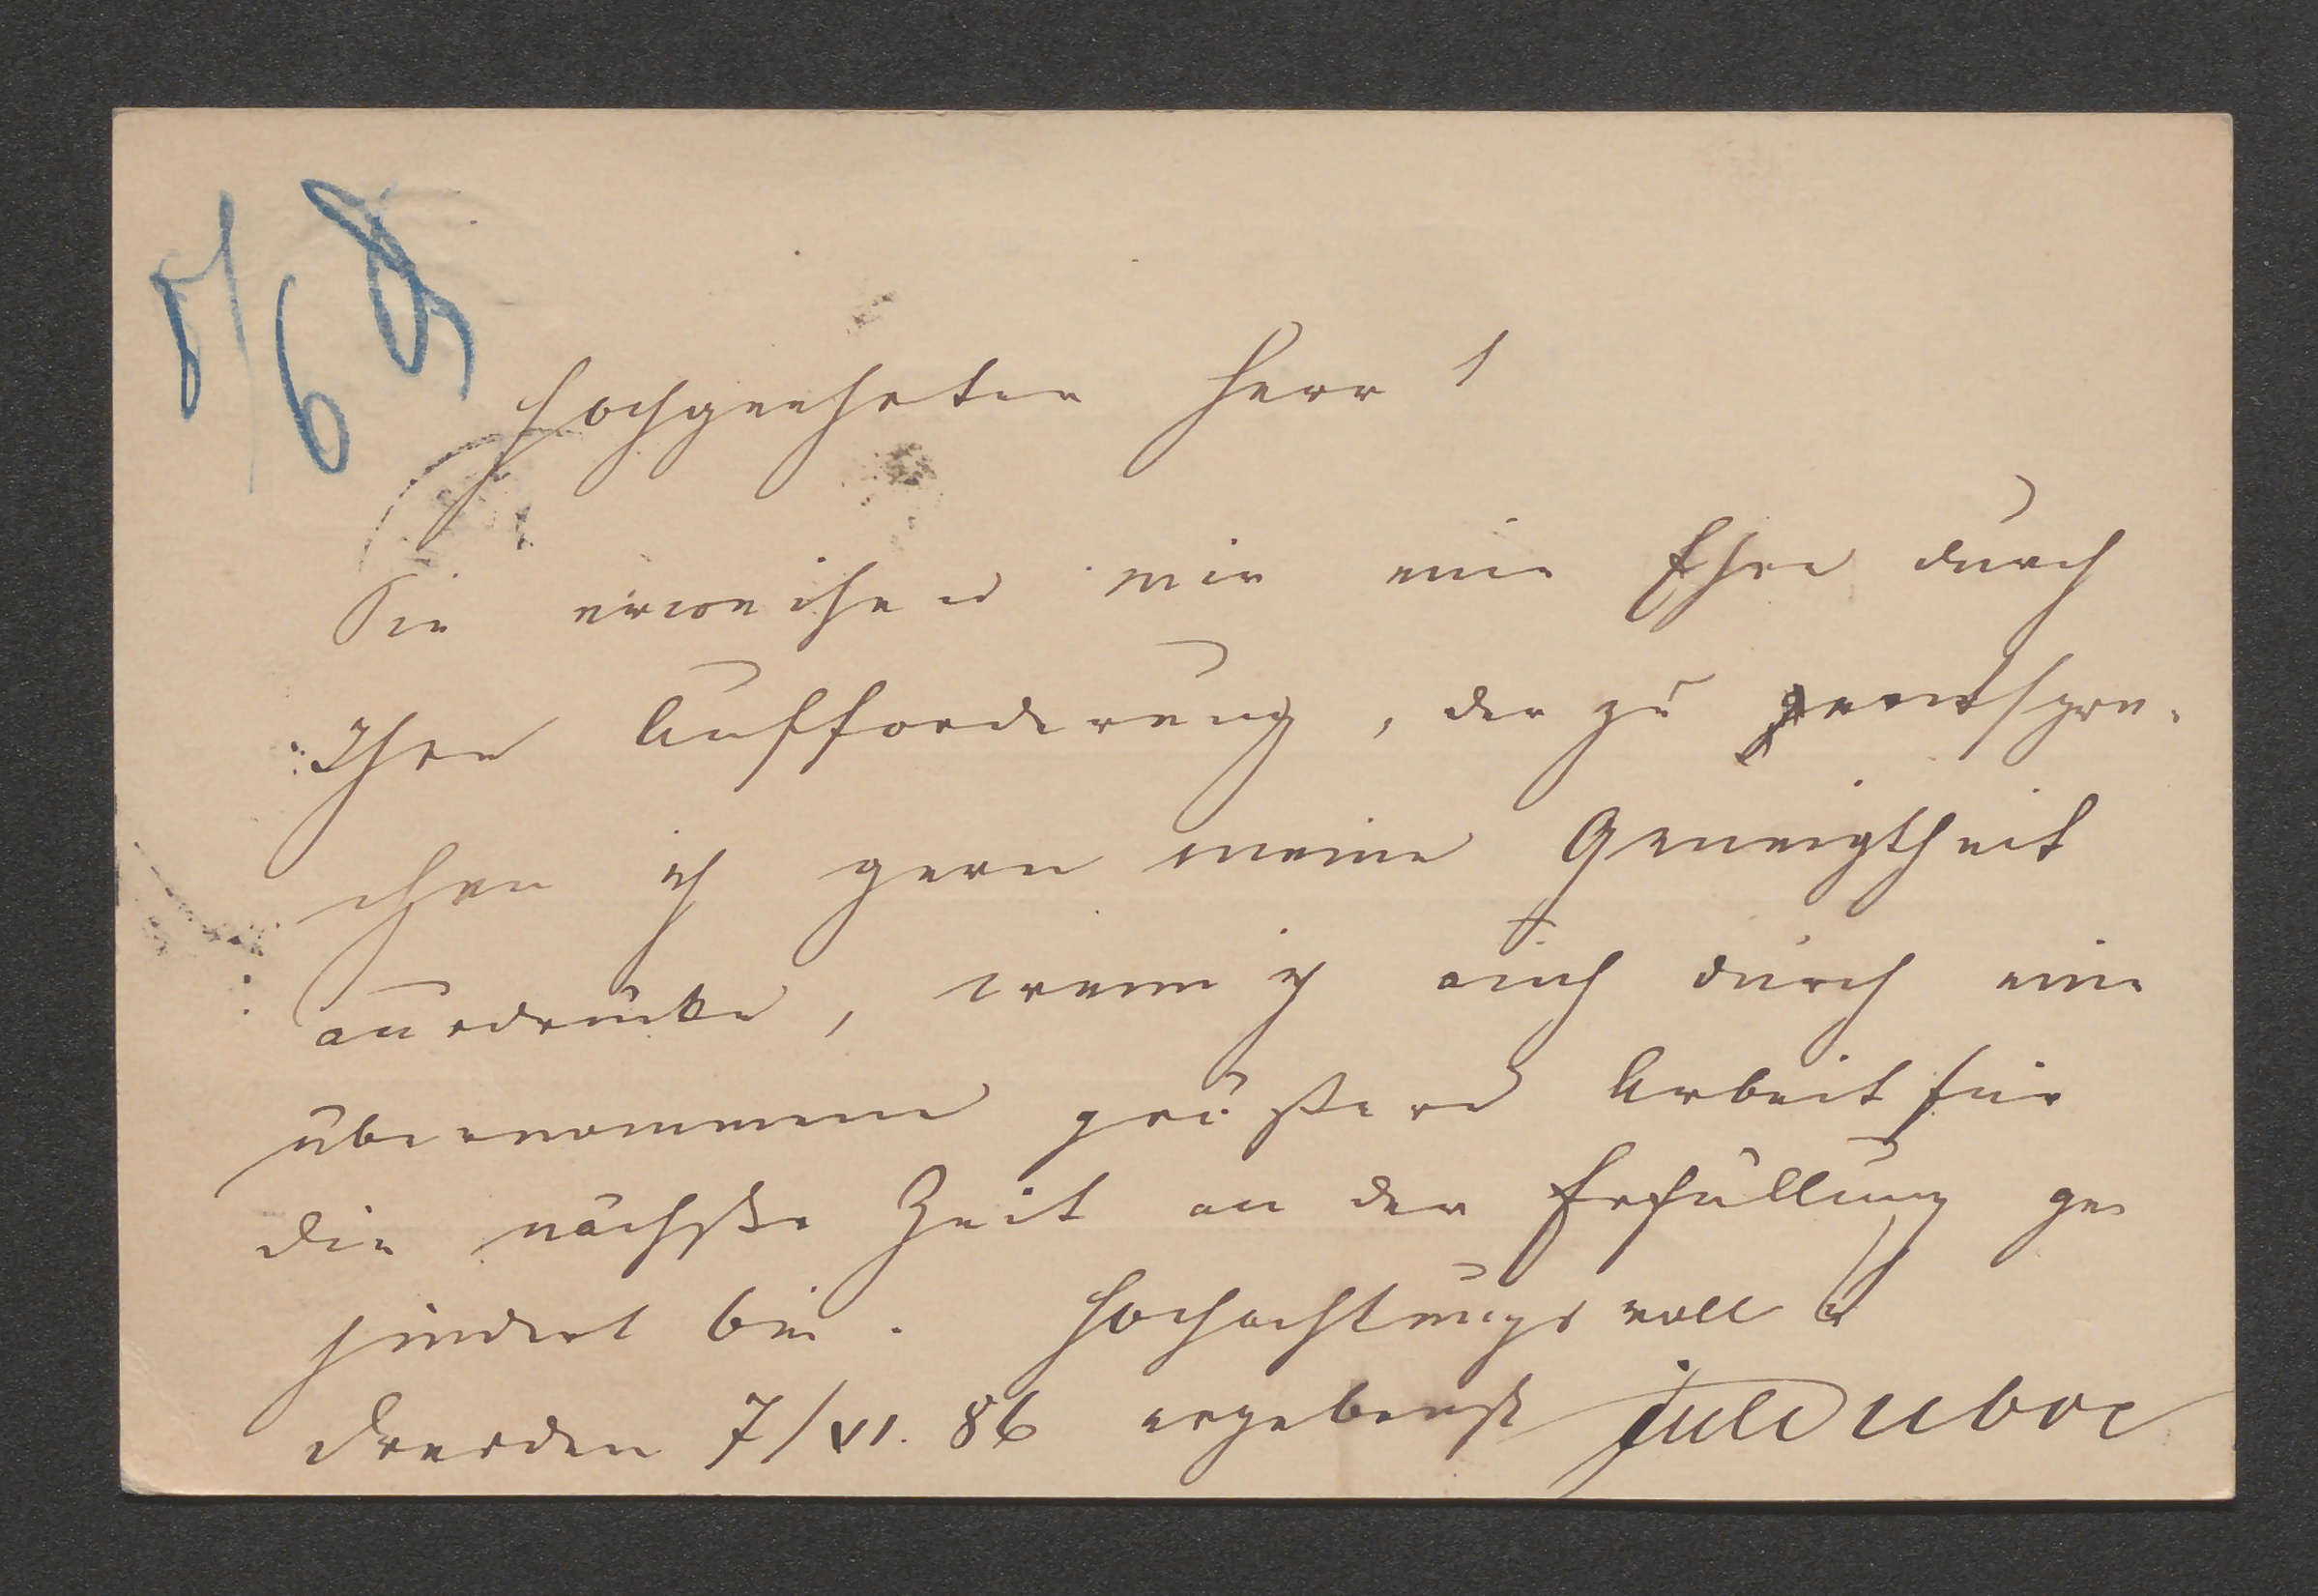 Hochgeehrter Herr!
Sie erweisen mir eine Ehre durch
Ihre Aufforderung, der zu entspre-
chen ich gern meine Geneigtheit
ausdrücke, wenn ich auch durch eine
übernommene größere Arbeit für
die nächste Zeit an der Erfüllung ge
hindert bin. Hochachtungsvoll &
Dresden 7/VI. 86 ergebenst Jul Duboc